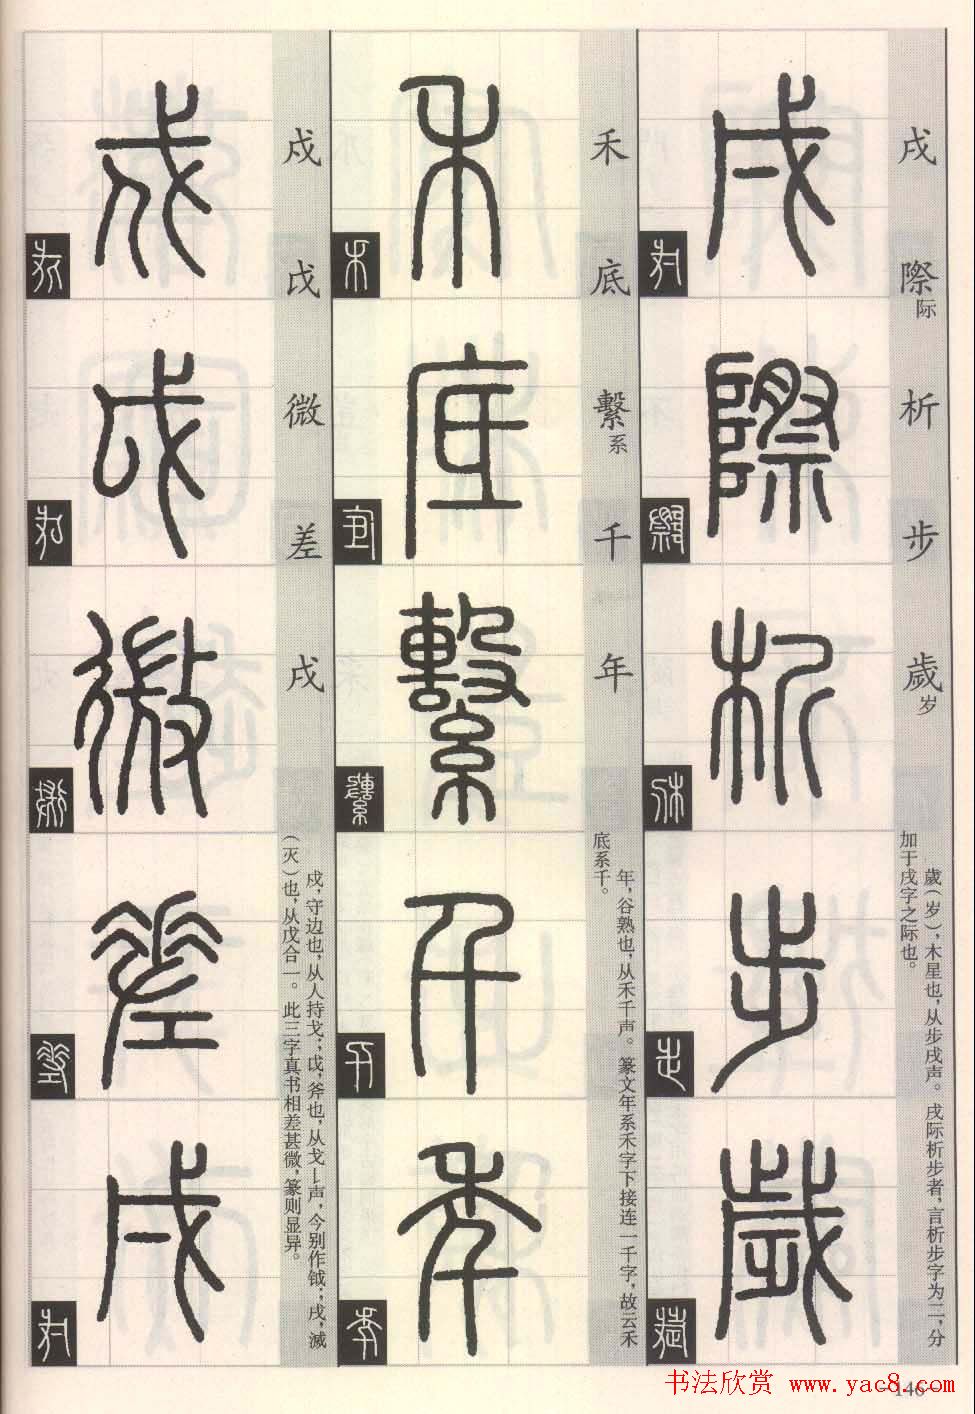 戌
際际
析
步
歲岁
歲(岁),木星也,从步戌声。戌际析步者,言析步字为二,分
加于戌字之际也。
禾
底
繫系
千
年
年,谷熟也,从禾千声。篆文年系禾字下接连一千字,故云禾
底系千。
戍
戉
微
差
戌
戍,守边也,从人持戈;戉,斧也,从戈乚声,今别作钺;戌,滅
(灭)也,从戊合一。此三字真书相差甚微,篆则显异。
书法欣赏 www.yac8.com
-146-